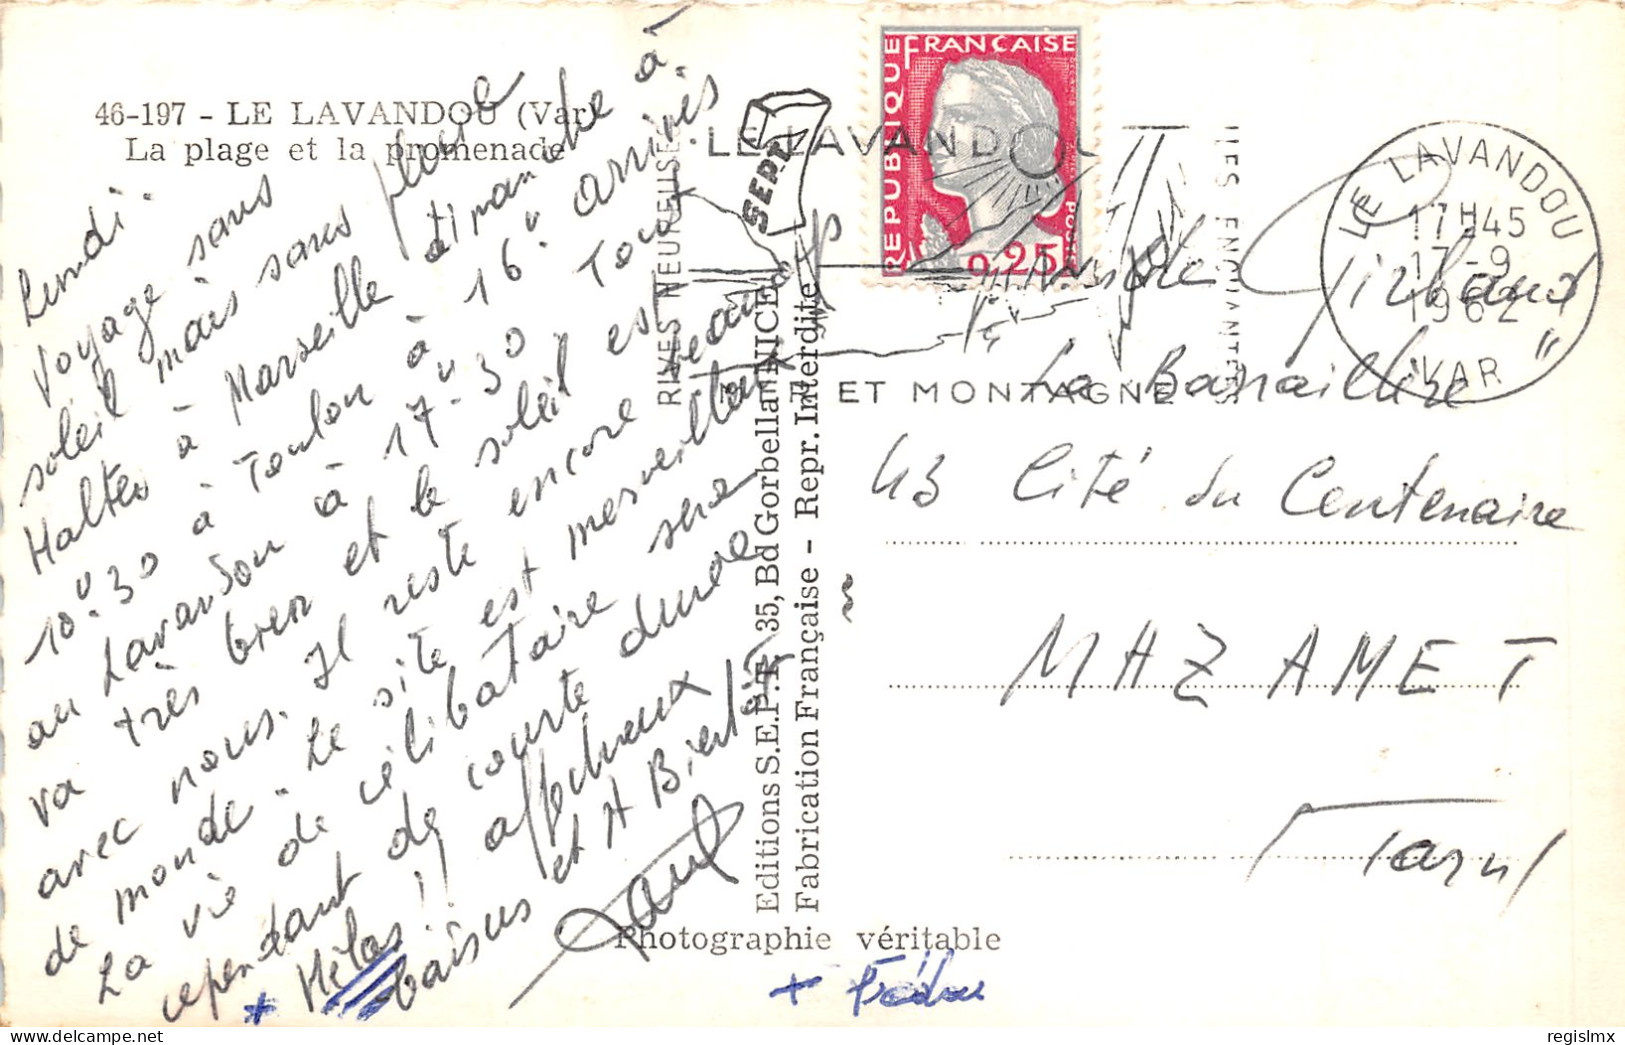 46-197 - LE LAVANDOU (Var)
La plage et la promenade
Lundi.
Voyage sans
soleil mais sans pluie
Haltes à Marseille dimanche à
10H.30 à Toulon à 16H. arrivés
au Lavandou à 17H-30 Tout
va très bien et le soleil est
avec nous. Il reste encore beaucoup
de monde. Le site est merveilleux
La vie de célibataire sera
cependant de courte durée
* Hélas!! affectueux
baisers et A Bientôt
Paul
Editions S.E.P.T. 35, Bd Gorbella NICE
Fabrication Française - Repr. Interdite
SEPT
Photographie véritable
+ Frédou
REPUBLIQUE FRANÇAISE
0,25
POSTES
LE LAVANDOU
RIVES NEUREUSES
ILES ENCHANTEES
ET MONTAGNE
LE LAVANDOU
17H45
17-9
1962
VAR
Girbaud
"La Banaillère"
43 Cité du Centenaire
MAZAMET
Tarn
regislmx